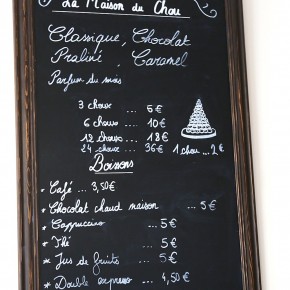 La Maison du Chou
Classique, Chocolat
Praliné, Caramel
Parfum du mois
3 choux ... 5€
6 choux ... 10€
12 choux ... 18€
24 choux ... 36€ 1 chou ... 2€
Boissons
* Café ... 3,50€
* Chocolat chaud maison ... 5€
* Cappuccino ... 5€
* Thé ... 5€
* Jus de fruits ... 5€
* Double expresso ... 4,50€